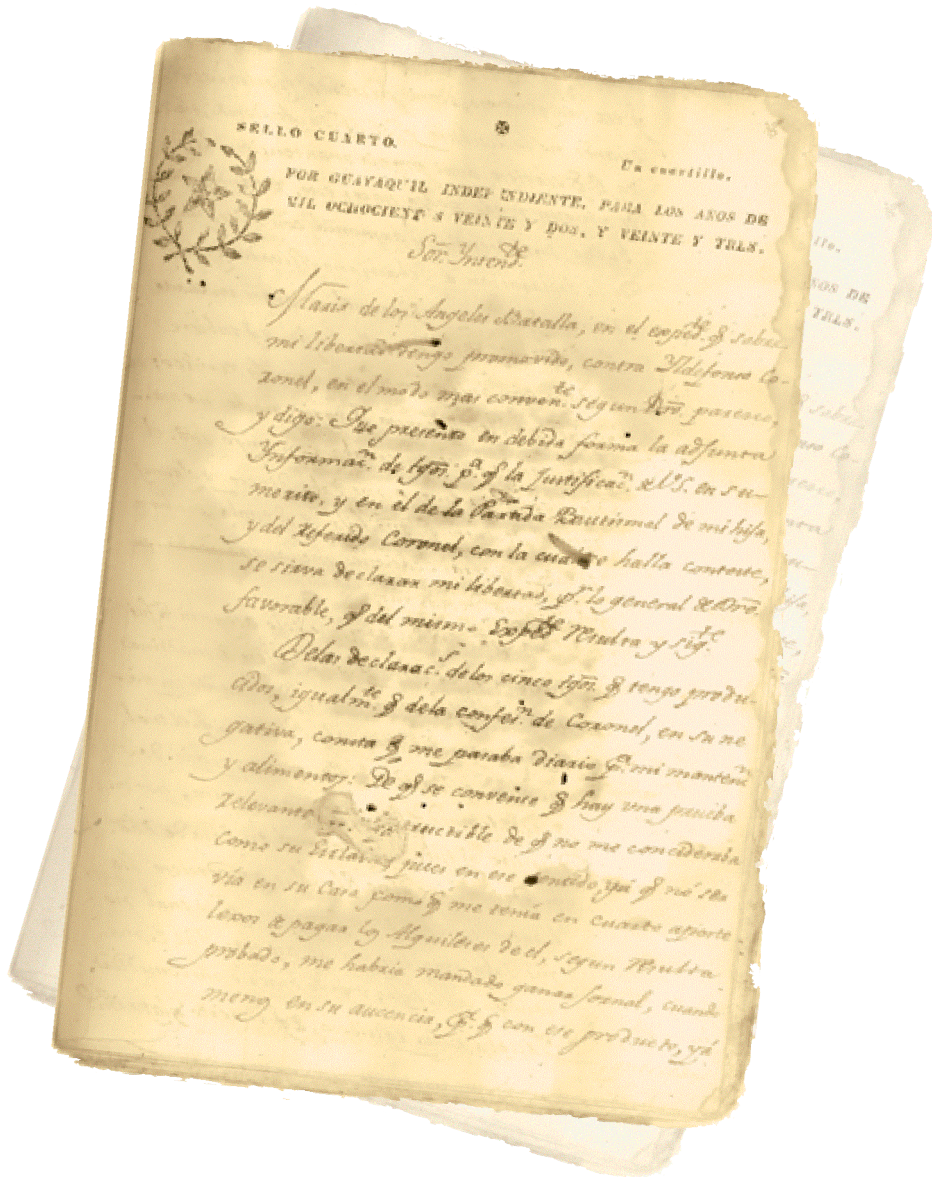 SELLO CUARTO.
Un cuartillo.
POR GUAYAQUIL INDEPENDIENTE, PARA LOS AÑOS DE
MIL OCHOCIENTOS VEINTE Y DOS, Y VEINTE Y TRES.
Sor. Ynten.te
Maria de los Angeles Batalla, en el exped.te q̃ sobre
mi libertad tengo promovido, contra Yldefonso Co-
ronel, en el modo mas conven.te segun Dro. paresco,
y digo: Que presento en debida forma la adjunta
Informac.n de tgos. p.a q̃ la Justificac.n de VS. en su
merito, y en el de la Partida Bautismal de mi hija,
y del referido Coronel, con la cual halla conteste,
se sirva declarar mi libertad, p.r lo general de Dro.
favorable, q̃ del mismo Exped.te resulta y sig.te
Delas declarac.s delos cinco tgos. q̃ tengo produ-
cidos, igualm.te q̃ dela confes.n de Coronel, en su ne
gativa, consta q̃ me pasaba diario p.a mi manten.n
y alimentos: De q̃ se convence q̃ hay una prueba
relevante de q̃ no me concideraba
como su Esclava, pues en ese sentido, yá q̃ nó ser
vía en su Casa como q̃ me tenía en cuarto aparte
lexos de pagar los Alquileres de el, segun resulta
probado, me habria mandado ganar jornal, cuando
menos en su aucencia, p.a q̃ con ese producto, yá
llo.
AÑOS DE
TRES.